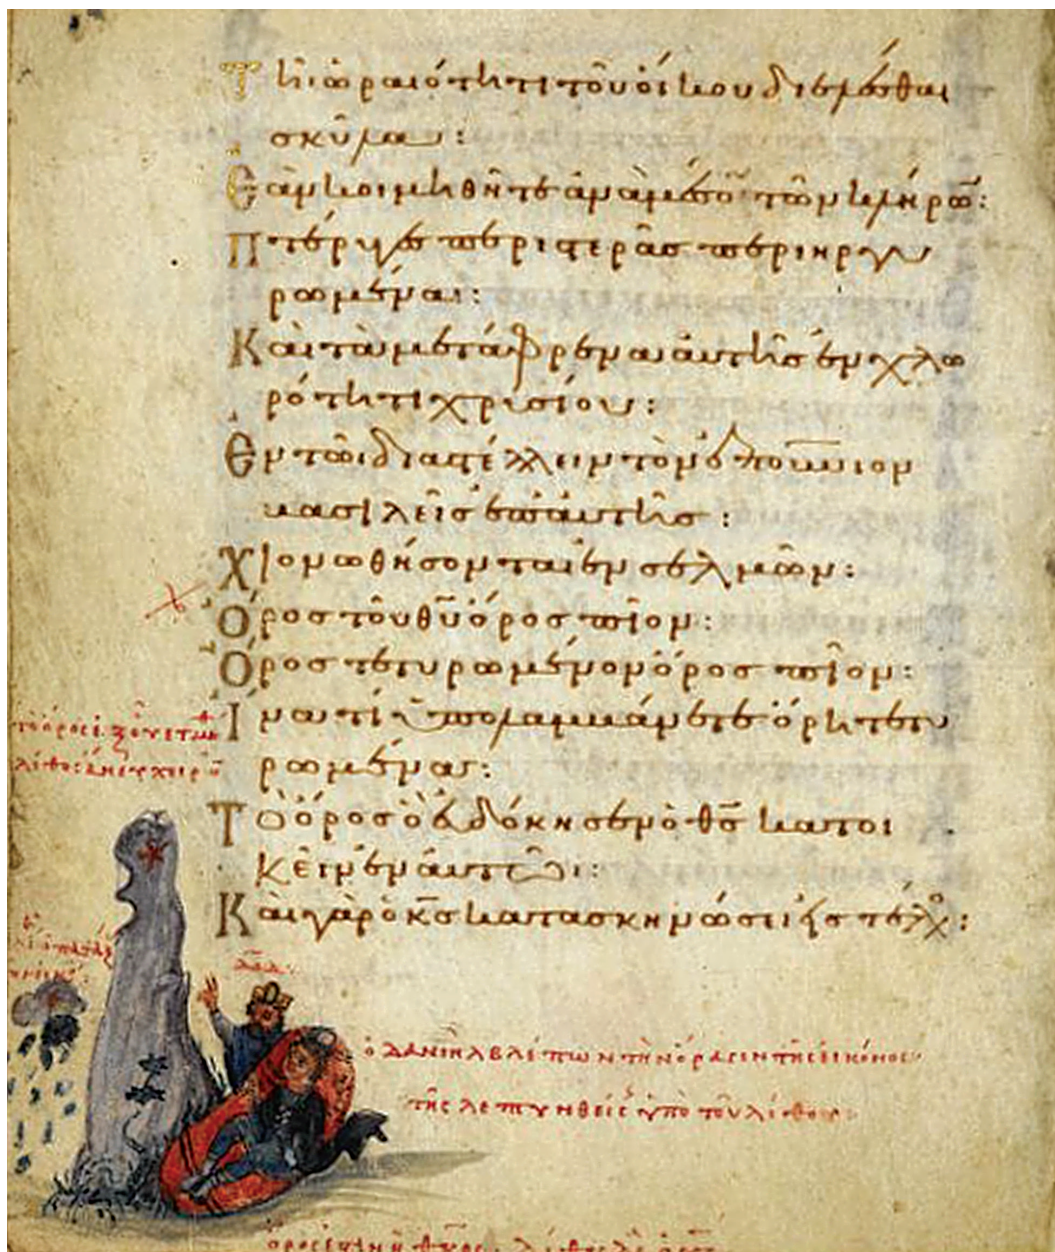 Τῆι ὡραιότητι τοῦ οἴκου διελέσθαι
σκῦλα:
Ἐὰν κοιμηθῆτε ἀναμέσο̅ τῶν κλήρω̅:
Πτέρυγες περιστερᾶς περιηργυ
ρωμέναι:
Καὶ τὰ μετάφρενα αὐτῆς ἐν χλω
ρότητι χρυσίου:
Ἐν τῶι διαστέλλειν τὸν ἐπου̅νιον
βασιλεῖς ἐπ αὐτῆς:
Χιονωθήσονται ἐν σελμῶν:
Ὄρος τοῦ θ̅υ̅ ὄρος πῖον:
Ὄρος τετυρωμένον ὄρος πῖον:
Ἱνα τί ὑπολαμβάνετε ὄρη τετυ
ρωμένα:
Τὸ ὄρος ὃ εὐδόκησεν ὁ θ̅ς̅ κατοι
κεῖν ἐν αὐτῶι:
Καὶ γὰρ ὁ κ̅ς̅ κατασκηνώσει εἰς τέλος:
τὸ ὄρος ἐξ οὗ ἐτμή
λίθος ἄνευ χειρω̅
δ̅α̅δ̅
ὁ δανιὴλ βλέπων τὴν ὅρασιν τῆς εἰκόνος
τῆς λεπτυνθείσ ὑπὸ τοῦ λίθου: